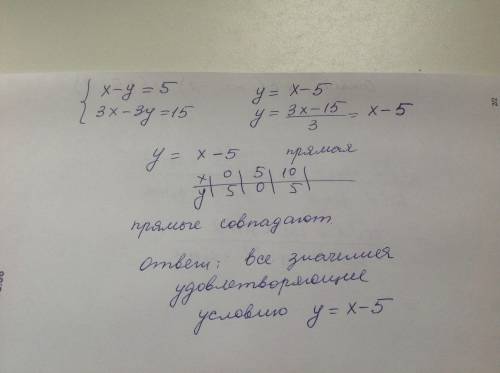 { x-y = 5    y = x-5
3x-3y=15    y = \frac{3x-15}{3} = x-5
y = x-5    прямая
x | 0 | 5 | 10 |
y | 5 | 0 | 5 |
прямые совпадают.
ответ: все значения
удовлетворяющие
условию y = x-5